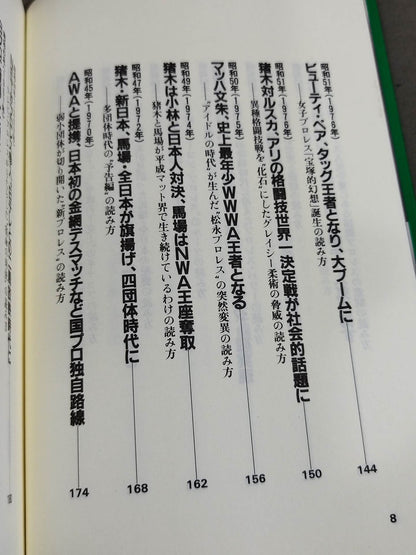 昭和51年(1976年)
ビューティ・ペア、タッグ王者となり、大ブームに
女子プロレス“宝塚的幻想”誕生の読み方
144
昭和51年(1976年)
猪木対ルスカ、アリの格闘技世界一決定戦が社会的話題に
異種格闘技戦を“化石”にしたグレイシー柔術の脅威の読み方
150
昭和50年(1975年)
マッハ文朱、史上最年少WWWA王者となる
“アイドルの時代”が生んだ“松永プロレス”の突然変異の読み方
156
昭和49年(1974年)
猪木は小林と日本人対決、馬場はNWA王座奪取
猪木と馬場が平成マット界で生き続けているわけの読み方
162
昭和47年(1972年)
猪木・新日本、馬場・全日本が旗揚げ、四団体時代に
多団体時代の“予告編”の読み方
168
昭和45年(1970年)
AWAと提携、日本初の金網デスマッチなど国プロ独自路線
弱小団体が切り開いた“新プロレス”の読み方
174
8